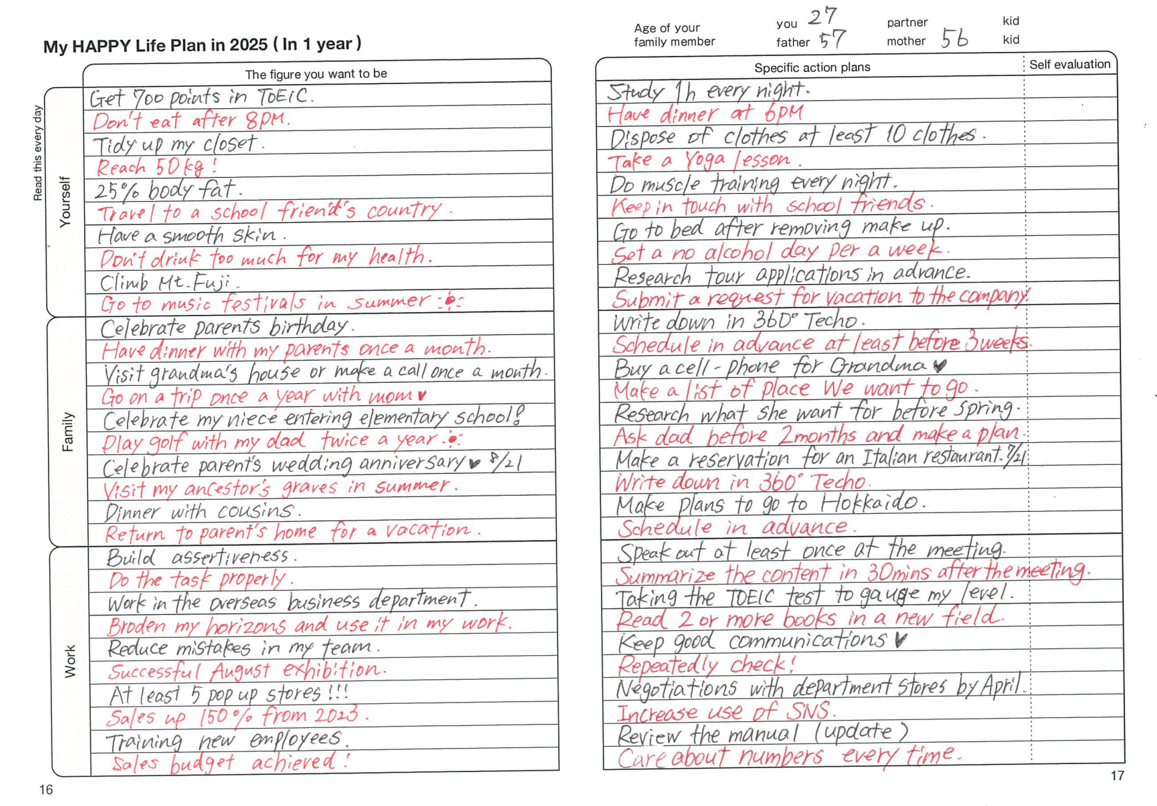 My HAPPY Life Plan in 2025 ( In 1 year )
The figure you want to be
Read this every day
Yourself
Get 700 points in TOEIC.
Don't eat after 8PM.
Tidy up my closet.
Reach 50kg!
25% body fat.
Travel to a school friend's country.
Have a smooth skin.
Don't drink too much for my health.
Climb Mt.Fuji.
Go to music festivals in summer
Family
Celebrate parents birthday.
Have dinner with my parents once a month.
Visit grandma's house or make a call once a month.
Go on a trip once a year with mom♥
Celebrate my niece entering elementary school!
Play golf with my dad twice a year
Celebrate parent's wedding anniversary♥ 8/21
Visit my ancestor's graves in summer.
Dinner with cousins.
Return to parent's home for a vacation.
Work
Build assertiveness.
Do the task properly.
Work in the overseas business department.
Broden my horizons and use it in my work.
Reduce mistakes in my team.
Successful August exhibition.
At least 5 pop up stores!!!
Sales up 150% from 2023.
Training new employees.
Sales budget achieved!
16
Age of your family member
you 27
partner
kid
father 57
mother 56
kid
Specific action plans
Self evaluation
Study 1h every night.
Have dinner at 6PM
Dispose of clothes at least 10 clothes.
Take a Yoga lesson.
Do muscle training every night.
Keep in touch with school friends.
Go to bed after removing make up.
Set a no alcohol day per a week.
Research tour applications in advance.
Submit a request for vacation to the company.
Write down in 360° Techo.
Schedule in advance at least before 3weeks.
Buy a cell-phone for Grandma♥
Make a list of place We want to go.
Research what she want for before Spring.
Ask dad before 2months and make a plan.
Make a reservation for an Italian restaurant. 7/21
Write down in 360° Techo.
Make plans to go to Hokkaido.
Schedule in advance.
Speak out at least once at the meeting.
Summarize the content in 30mins after the meeting.
Taking the TOEIC test to gauge my level.
Read 2 or more books in a new field.
Keep good communications♥
Repeatedly check!
Negotiations with department stores by April.
Increase use of SNS.
Review the manual (update)
Care about numbers every time.
17